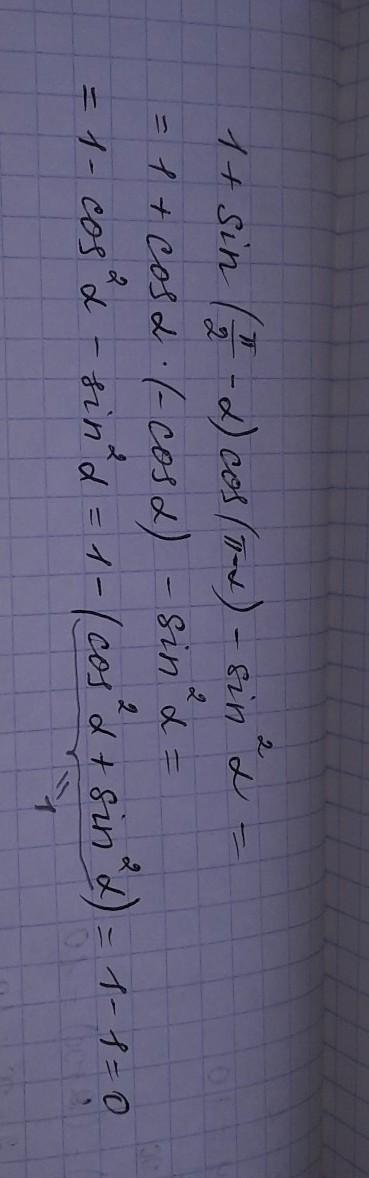 1 + sin (π/2 - α) cos(π-α) - sin² α =
= 1 + cos α · (- cos α) - sin² α =
= 1 - cos² α - sin² α = 1 - (cos² α + sin² α) = 1 - 1 = 0
= 1